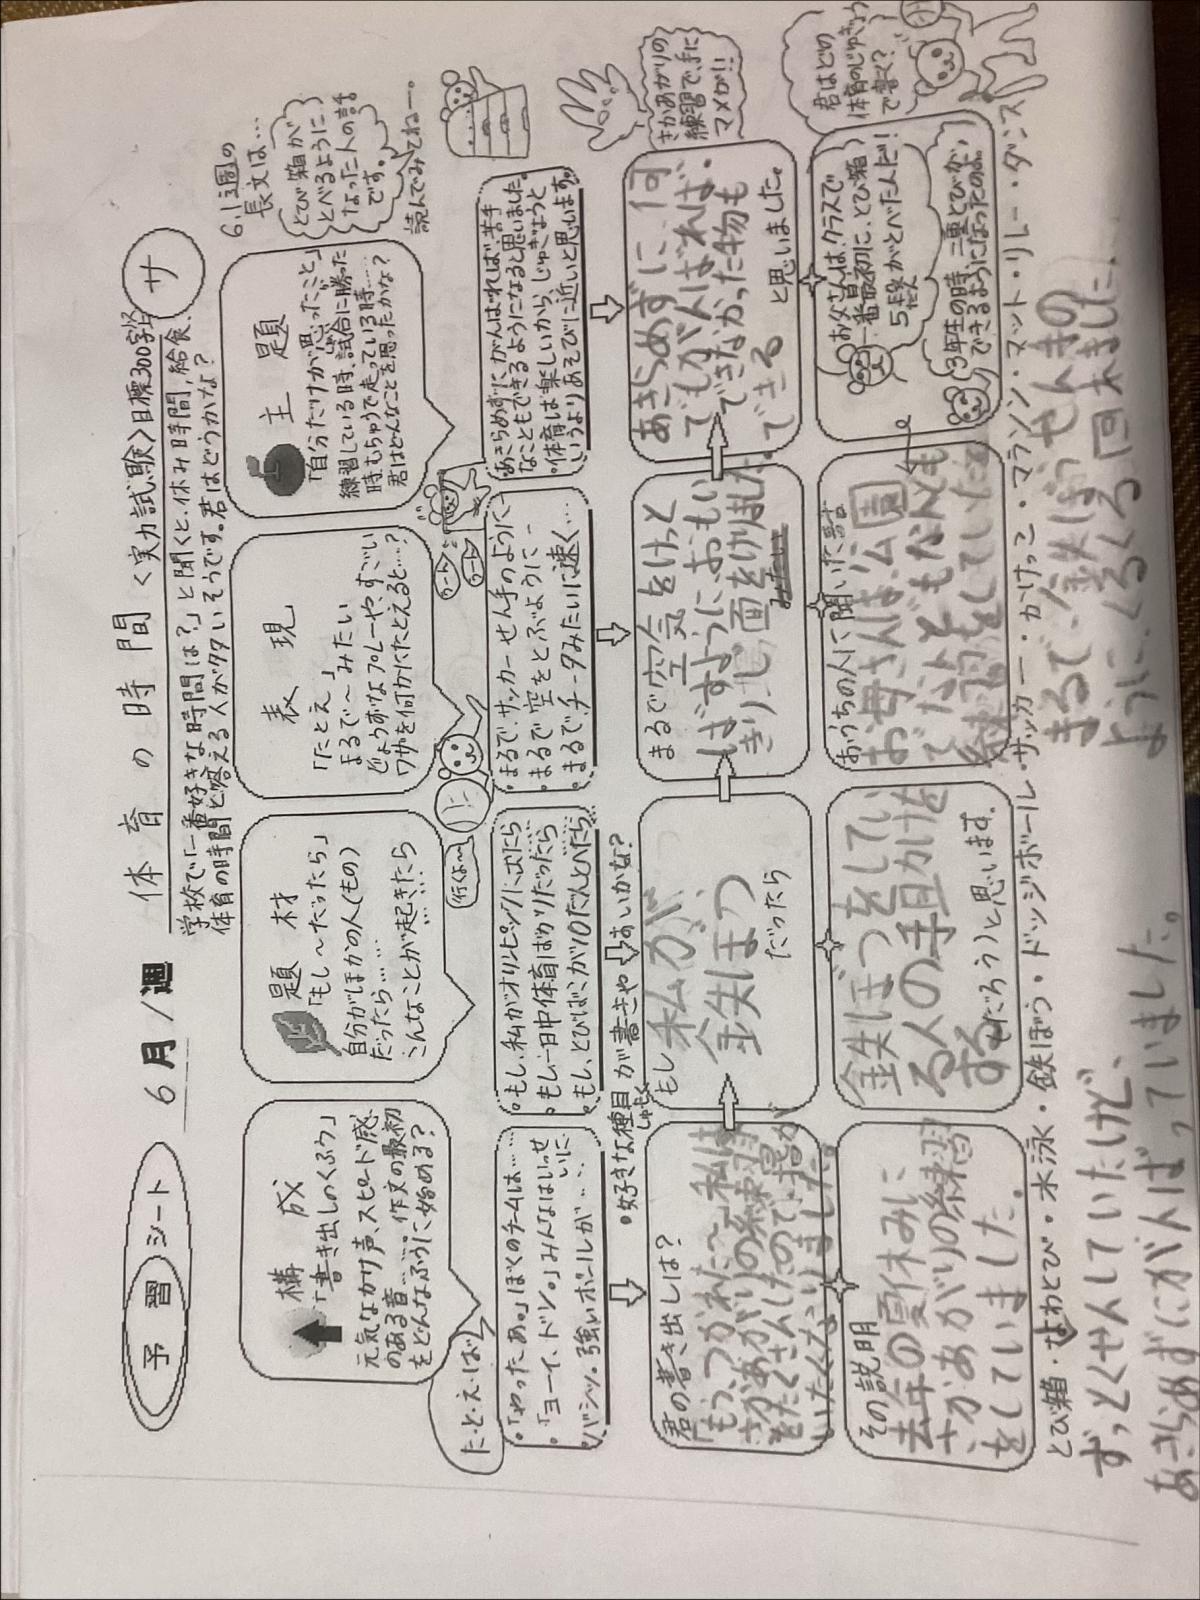 予習シート
6月1週
体育の時間
<実力試験>目標300字
サ
学校で「一番好きな時間は?」と聞くと、休み時間、給食、
体育の時間と答える人が多いそうです。君はどうかな?
6.1週の
長文は…
とび箱が
とべるように
なった人の話
です。
読んでみてねー。
構成
「書き出しのくふう」
元気なかけ声、スピード感
のある音…。作文の最初
をどんなふうに始める?
題材
「もし～だったら」
自分がほかの人(もの)
だったら……
こんなことが起きたら
……
表現
「たとえ」
まるで～みたい
じょうずなプレーや、すごい
ワザを何かにたとえると…?
主題
「自分だけが思ったこと」
練習している時、試合に勝った
時、むちゅうで走っている時……
君はどんなことを思ったかな?
た・と・え・ば
・「やったあ。」ぼくのチームは……
・「ヨーイ、ドン。」みんなはいっせいに…
・バシッ。強いボールが…
行くよ～
・もし、私がオリンピックに出たら
・もし、一日中体育ばかりだったら
・もし、とびばこが10だんとべたら
・まるで、サッカーせん手のように
・まるで空をとぶように…
・まるで、チータみたいに速く…
・あきらめずにがんばれば、苦手
なこともできるようになると思いました。
・体育は楽しいから、じゅぎょうと
いうよりあそびに近いと思います。
さかあがりの
練習で、手に
マメが!!
・好きな種目が書きやすいかな?
しゅもく
君の書き出しは?
「もう、つかれた～」私は
さかあがりの練習
をたくさんしたので、指が
いたくなりました。
もし
私が、
鉄ぼう
だったら
まるで空気をけっと
ばすように、おもい
きり地面をけりました。
みたい
あきらめずに、何
でもがんばれば、
できなかった物も
できる
と思いました。
君はどの
体育のじゅぎょう
で書く?
その説明
去年の夏休みに
さかあがりの練習
をしていました。
鉄ぼうをしてい
る人の手助けを
する
(もだろう)と思います。
おうちの人に聞いた話
お母さんは、公園
でなんどもなんども
練習をしていた
お父さんは、クラスで
一番最初に、とび箱
5段がとべた人だ!
3年生の時、三重とびが
できるようになったのよ。
とび箱・なわとび・水泳・鉄ぼう・ドッジボール・サッカー・かけっこ・マラソン・マット・リレー・ダンス
ずっとくせんしていたけど、
あきらめずにがんばっていました。
まるで、鉄ぼうせん手の
ように、くるくる回れました